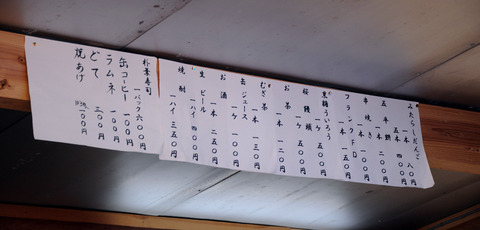 みたらしだんご
一本 八〇円
五本 四〇〇円
五平餅
一本
串焼き
一本
フランクF.D
一本 一五〇円
黒糖ういろう
一ケ 五〇円
桜饅頭
一ケ 五〇円
お茶
一本 一二〇円
むぎ茶
一本 一三〇円
缶ジュース
一本
お酒
一本 二五〇円
生ビール
一ハイ 四〇〇円
焼酎
一ハイ 三五〇円
朴葉寿司
一パック 六〇〇円
缶コーヒー
一〇〇円
ラムネ
二〇〇円
どて
焼あげ